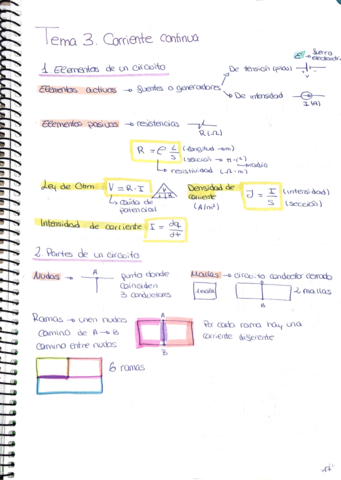 Tema 3. Corriente continua
1. Elementos de un circuito
Elementos activos → fuentes o generadores
De tensión (pilas)
ε → fuerza electromotriz
De intensidad
I (A)
Elementos pasivos → resistencias
R (Ω)
R = ρ L/S
(longitud → m)
(sección → π·r²)
radio
resistividad (Ω·m)
Ley de Ohm
V = R · I
caída de potencial
Densidad de corriente
(A/m²)
J = I/S
(intensidad)
(sección)
Intensidad de corriente
I = dq/dt
2. Partes de un circuito
Nudos →
A
punto donde coinciden 3 conductores
Mallas → circuito conductor cerrado
1 malla
2 mallas
Ramas → unen nudos
camino de A → B
camino entre nudos
A
B
Por cada rama hay una corriente diferente
6 ramas